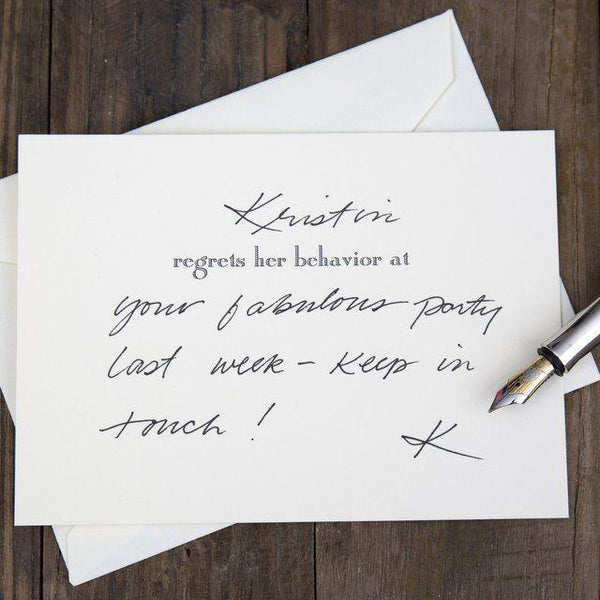 Kristin
regrets her behavior at
your fabulous party
last week – Keep in
touch!
K